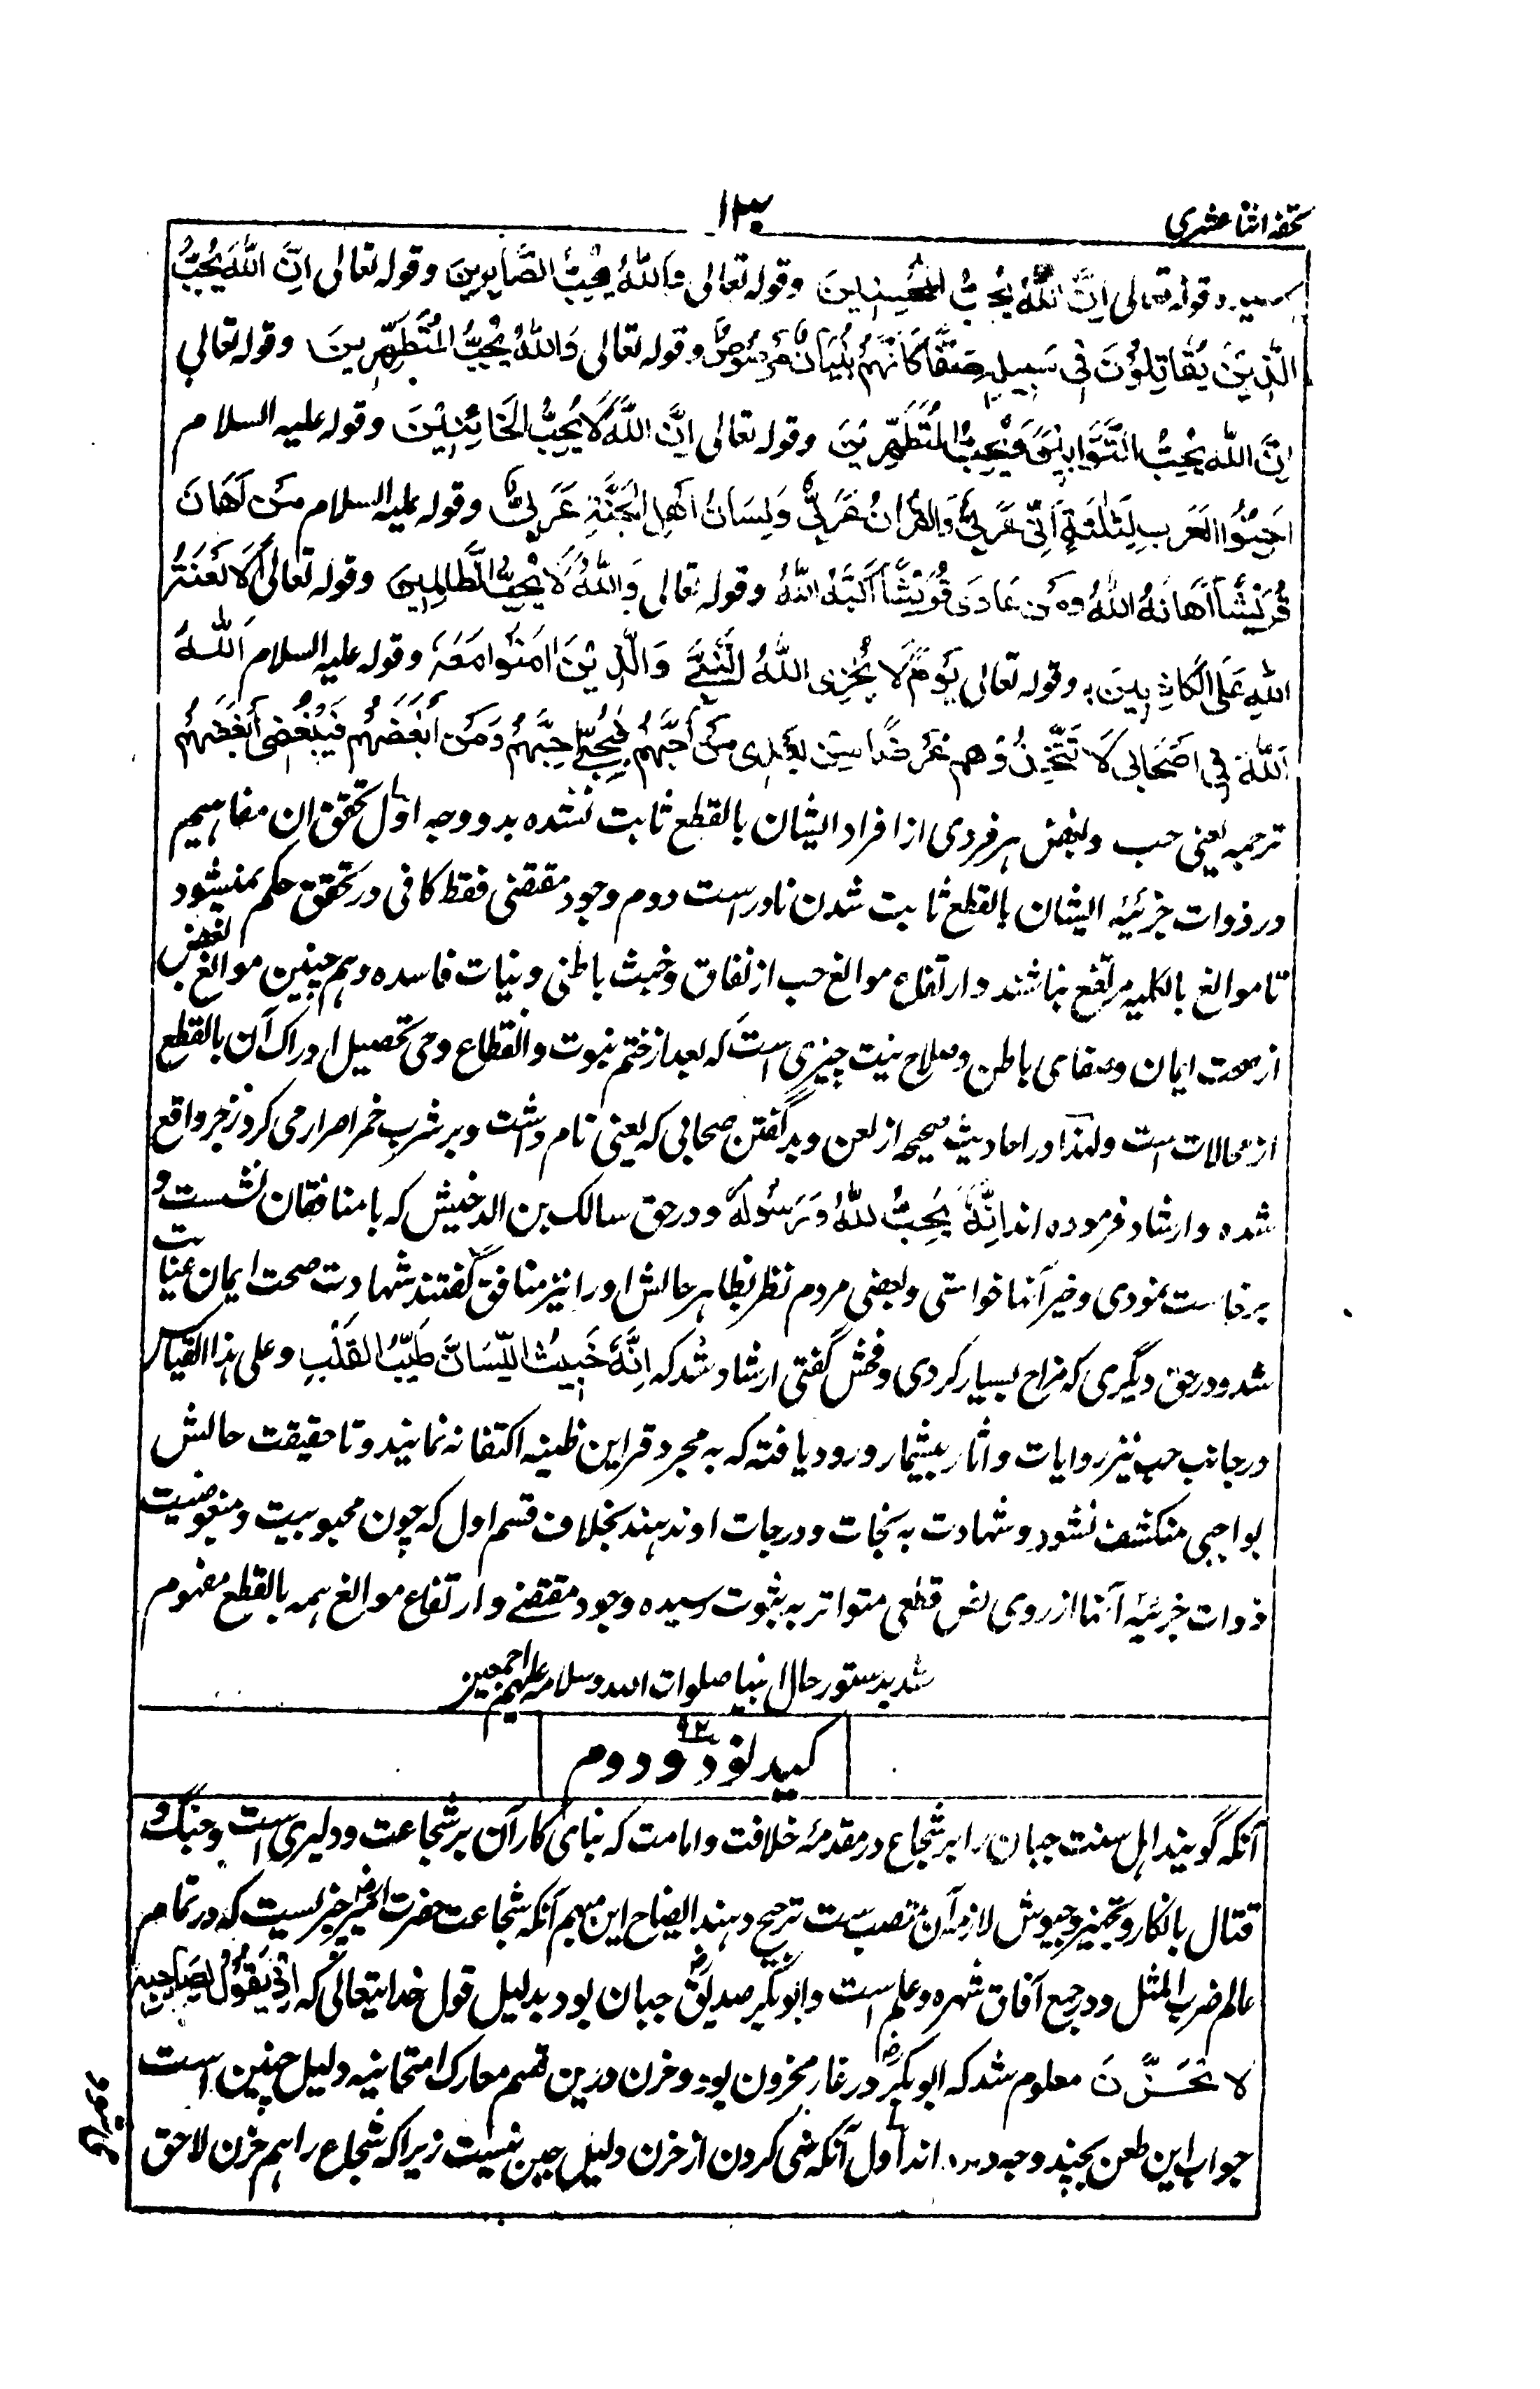 تحفه اثنا عشری
۱۳۰
وقوله تعالی اِنَّ اللّٰهَ یُحِبُّ الْمُحْسِنِینَ وقوله تعالی وَاللّٰهُ یُحِبُّ الصَّابِرِینَ وقوله تعالی اِنَّ اللّٰهَ یُحِبُّ
الَّذِیْنَ یُقَاتِلُوْنَ فِی سَبِیلِهِ صَفًّا کَاَنَّهُمْ بُنْیَانٌ مَرْصُوصٌ وقوله تعالی وَاللّٰهُ یُحِبُّ الْمُتَطَهِّرِینَ وقوله تعالی
اِنَّ اللّٰهَ یُحِبُّ التَّوَّابِیْنَ وَیُحِبُّ الْمُتَطَهِّرِیْنَ وقوله تعالی اِنَّ اللّٰهَ لَا یُحِبُّ الْخَائِنِیْنَ وقوله علیه السلام
اَحِبُّوا الْعَرَبَ لِثَلٰثَةٍ اَنِّی عَرَبِیٌّ وَالْقُرْاٰنُ عَرَبِیٌّ وَلِسَانُ اَهْلِ الْجَنَّةِ عَرَبِیٌّ وقوله علیه السلام مَنْ اَهَانَ
قُرَیْشًا اَهَانَهُ اللّٰهُ وَمَنْ عَادَی قُرَیْشًا اَکَبَّهُ اللّٰهُ وقوله تعالی وَاللّٰهُ لَا یُحِبُّ الظَّالِمِینَ وقوله تعالی اَلَا لَعْنَةُ
اللّٰهِ عَلَی الْکَاذِبِینَ وقوله تعالی یَوْمَ لَا یُخْزِی اللّٰهُ النَّبِیَّ وَالَّذِیْنَ اٰمَنُوْا مَعَهُ وقوله علیه السلام اَللّٰهَ
اَللّٰهَ فِی اَصْحَابِی لَا تَتَّخِذُوْهُمْ غَرَضًا مِنْ بَعْدِی مَنْ اَحَبَّهُمْ فَبِحُبِّی اَحَبَّهُمْ وَمَنْ اَبْغَضَهُمْ فَبِبُغْضِی اَبْغَضَهُمْ
ترجمه یعنی حب وبغض هر فردی از افراد ایشان بالقطع ثابت نشده بدو وجه اول تحقق ان مفاهیم
در ذوات جزئیه ایشان بالقطع ثابت شدن نادر است دوم وجود مقتضی فقط کافی در تحقق حکم نمیشود
تا موانع بالکلیه مرتفع نباشند وارتفاع موانع حب از نفاق وخبث باطنی ونیات فاسده وهم چنین موانع بغض
از صحت ایمان وصفای باطن وصلاح نیت چیزی است که بعد از ختم نبوت وانقطاع وحی تحصیل ادراک آن بالقطع
از محالات است ولهذا در احادیث صحیحه از لعن وبد گفتن صحابی که یعنی نام داشت وبر شرب خمر اصرار می کرد زجر واقع
شده وارشاد فرموده اند اِنَّهُ یُحِبُّ اللّٰهَ وَرَسُوْلَهُ ودر حق سالک بن الدخیش که با منافقان نشست و
برخاست نمودی وخیر آنها خواستی وبعضی مردم نظر بظاهر حالش اورا نیز منافق گفتند شهادت صحت ایمان عنایت
شد ودر حق دیگری که مزاح بسیار کردی وفحش گفتی ارشاد شد که اِنَّهُ خَبِیثُ اللِّسَانِ طَیِّبُ الْقَلْبِ وعلی هذا القیاس
در جانب حب نیز روایات واثار بیشمار ورود یافته که به مجرد قراین ظنیه اکتفا نه نمایند وتا حقیقت حالش
بواجبی منکشف نشود وشهادت به نجات ودرجات او ندهند بخلاف قسم اول که چون محبوبیت ومبغوضیت
ذوات جزئیه آنها از روی نص قطعی متواتر به ثبوت رسیده وجود مقتضی وارتفاع موانع همه بالقطع مفهوم
شد بدستور حال انبیا صلوات الله وسلامه علیهم اجمعین
کید نود و دوم ۹۲
آنکه گویند اهل سنت جبان را بر شجاع در مقدمهٔ خلافت وامامت که بنای کار آن بر شجاعت ودلیری است وجنگ و
قتال با کفار وتجهیز جیوش لازمه آن منصب ست ترجیح دهند ایضاح این مبهم آنکه شجاعت حضرت امیرؓ چیزیست که در تمام
عالم ضرب المثل ودر جمیع آفاق شهره وعلم است وابوبکر صدیقؓ جبان بود بدلیل قول خدایتعالی که اِذْ یَقُوْلُ لِصَاحِبِهِ
لَا تَحْزَنْ معلوم شد که ابوبکرؓ در غار محزون بود وحزن درین قسم معارک امتحانیه دلیل جبن است
جواب این طعن بچند وجه داده اند اول آنکه نهی کردن از حزن دلیل جبن نیست زیرا که شجاع را هم حزن لاحق